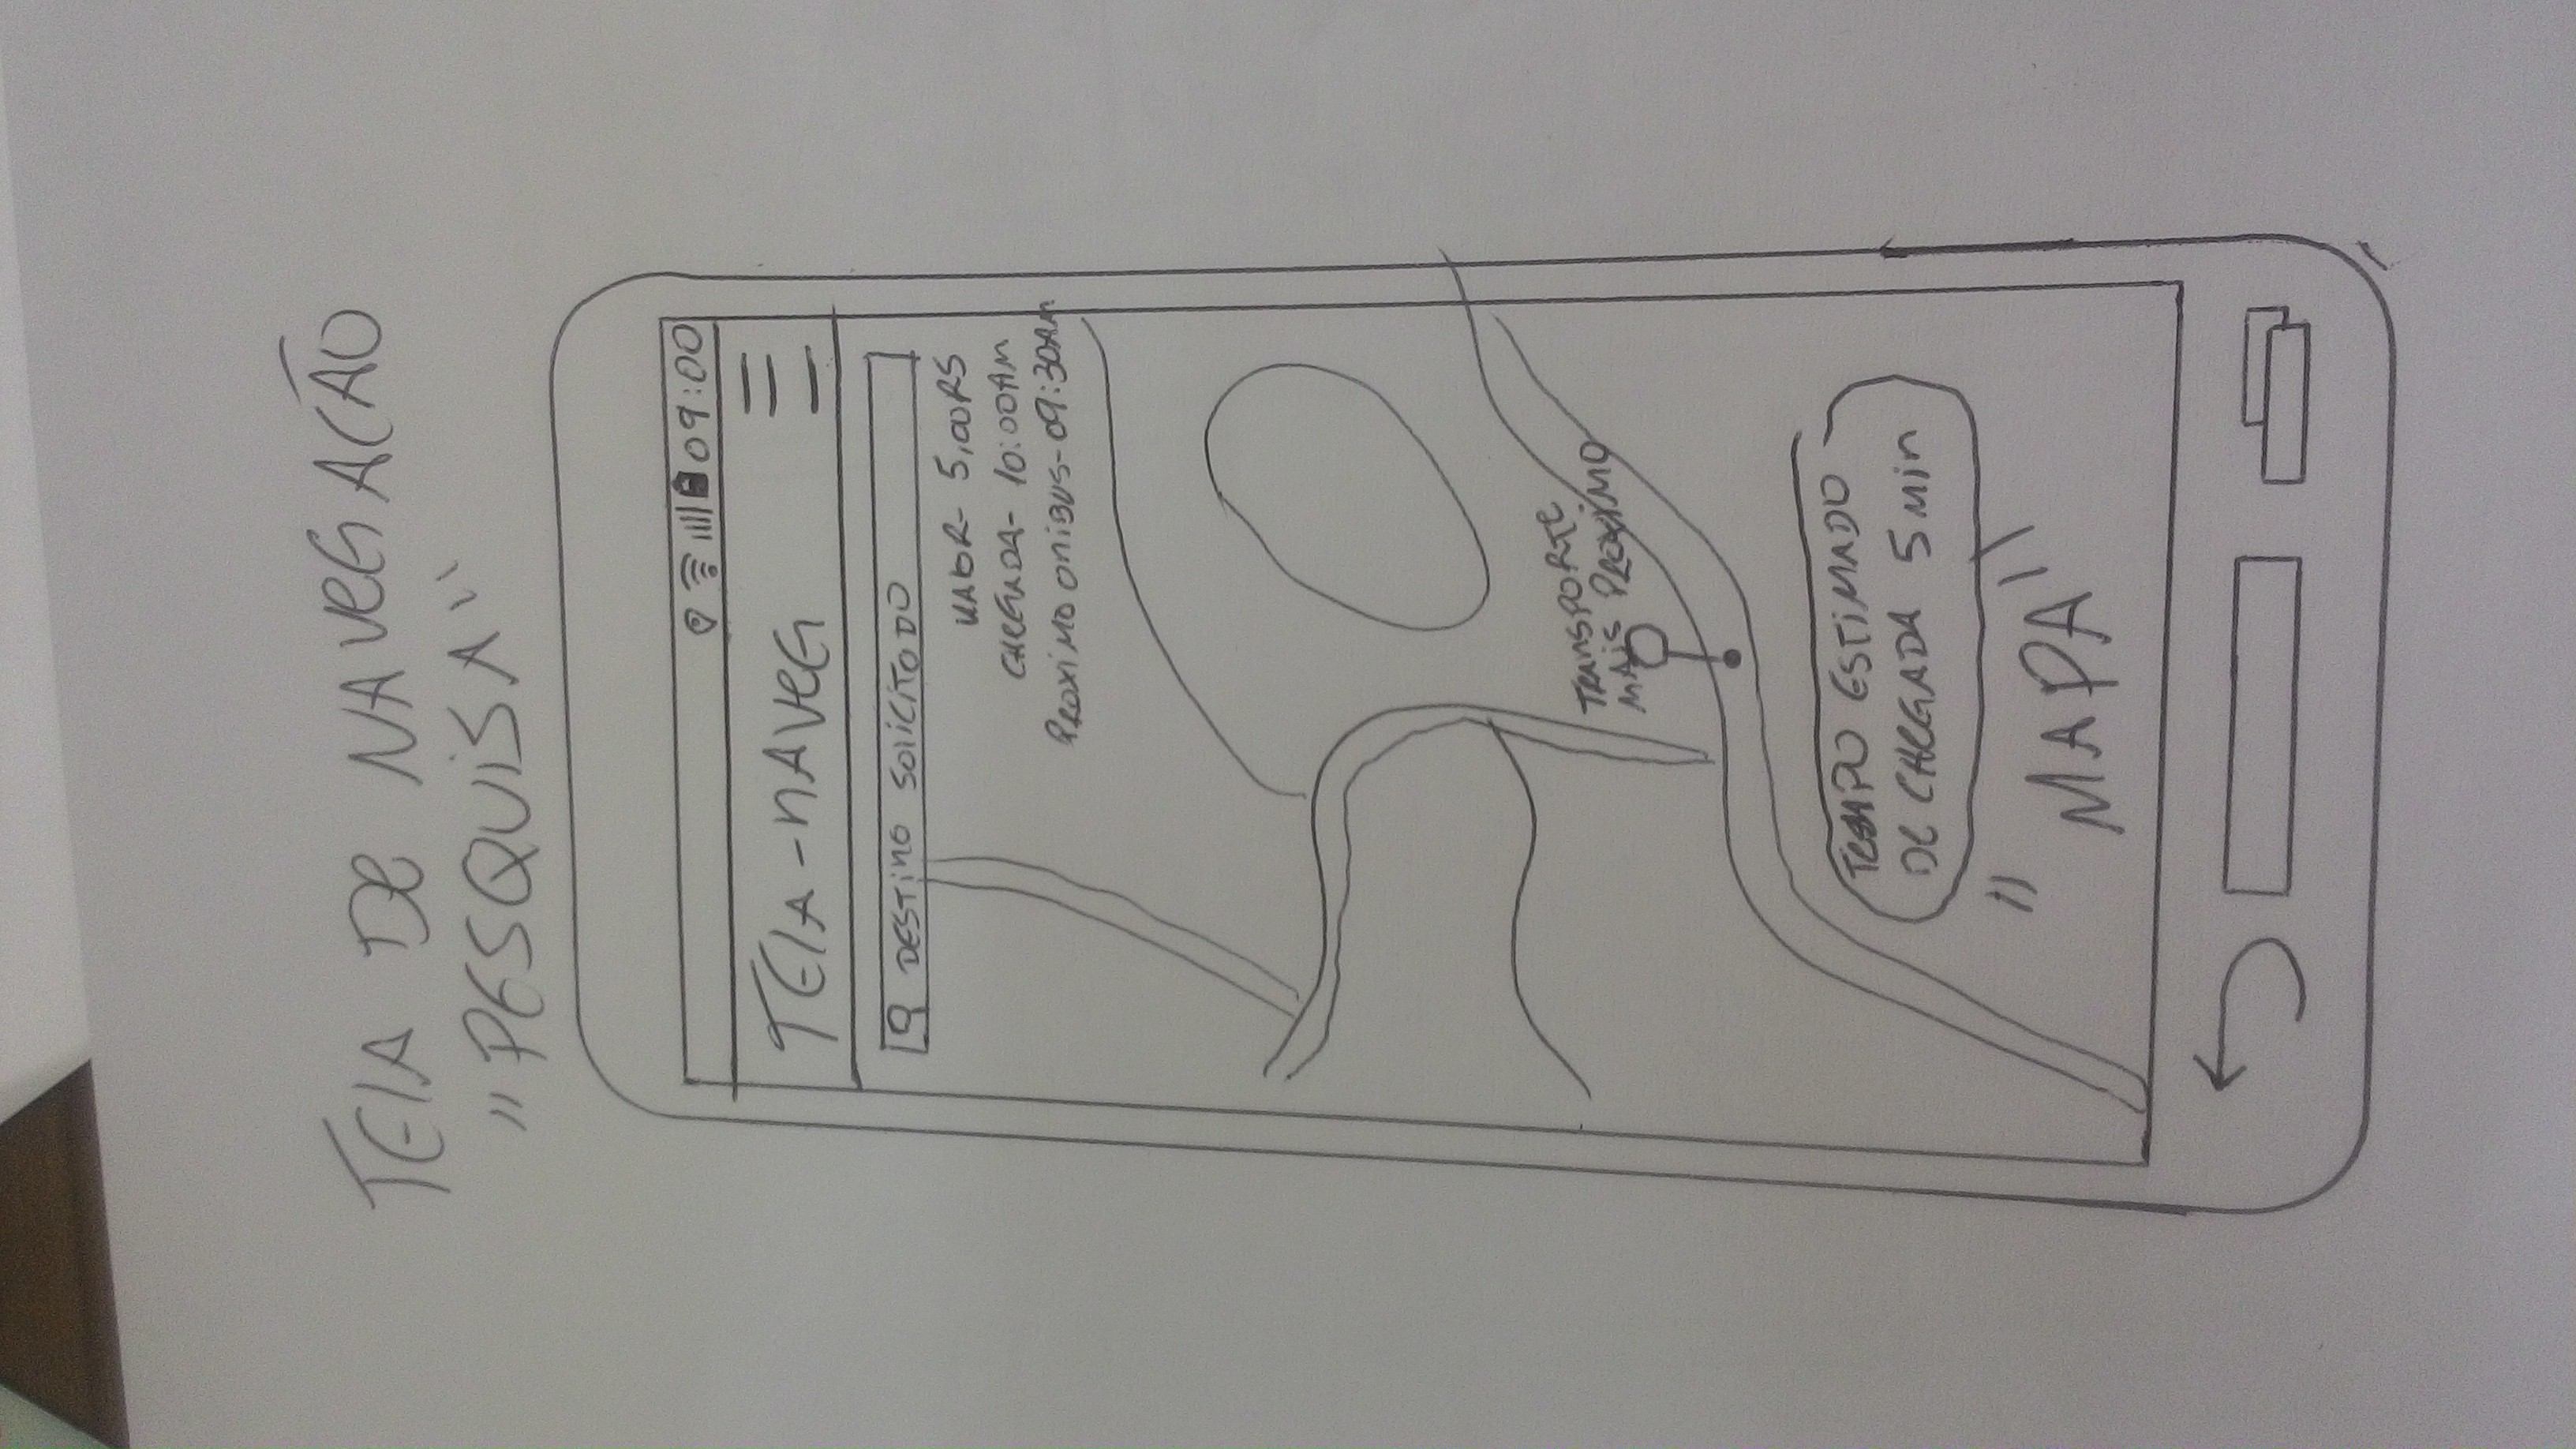 TELA DE NAVEGAÇÃO
"PESQUISA"
09:00
TELA-NAVEG
DESTINO SOLICITODO
VALOR- 5,00RS
CHEGADA- 10:00AM
PROXIMO ONIBUS-09:30AM
TRANSPORTE
MAIS PROXIMO
TEMPO ESTIMADO
DE CHEGADA 5 min
"MAPA"